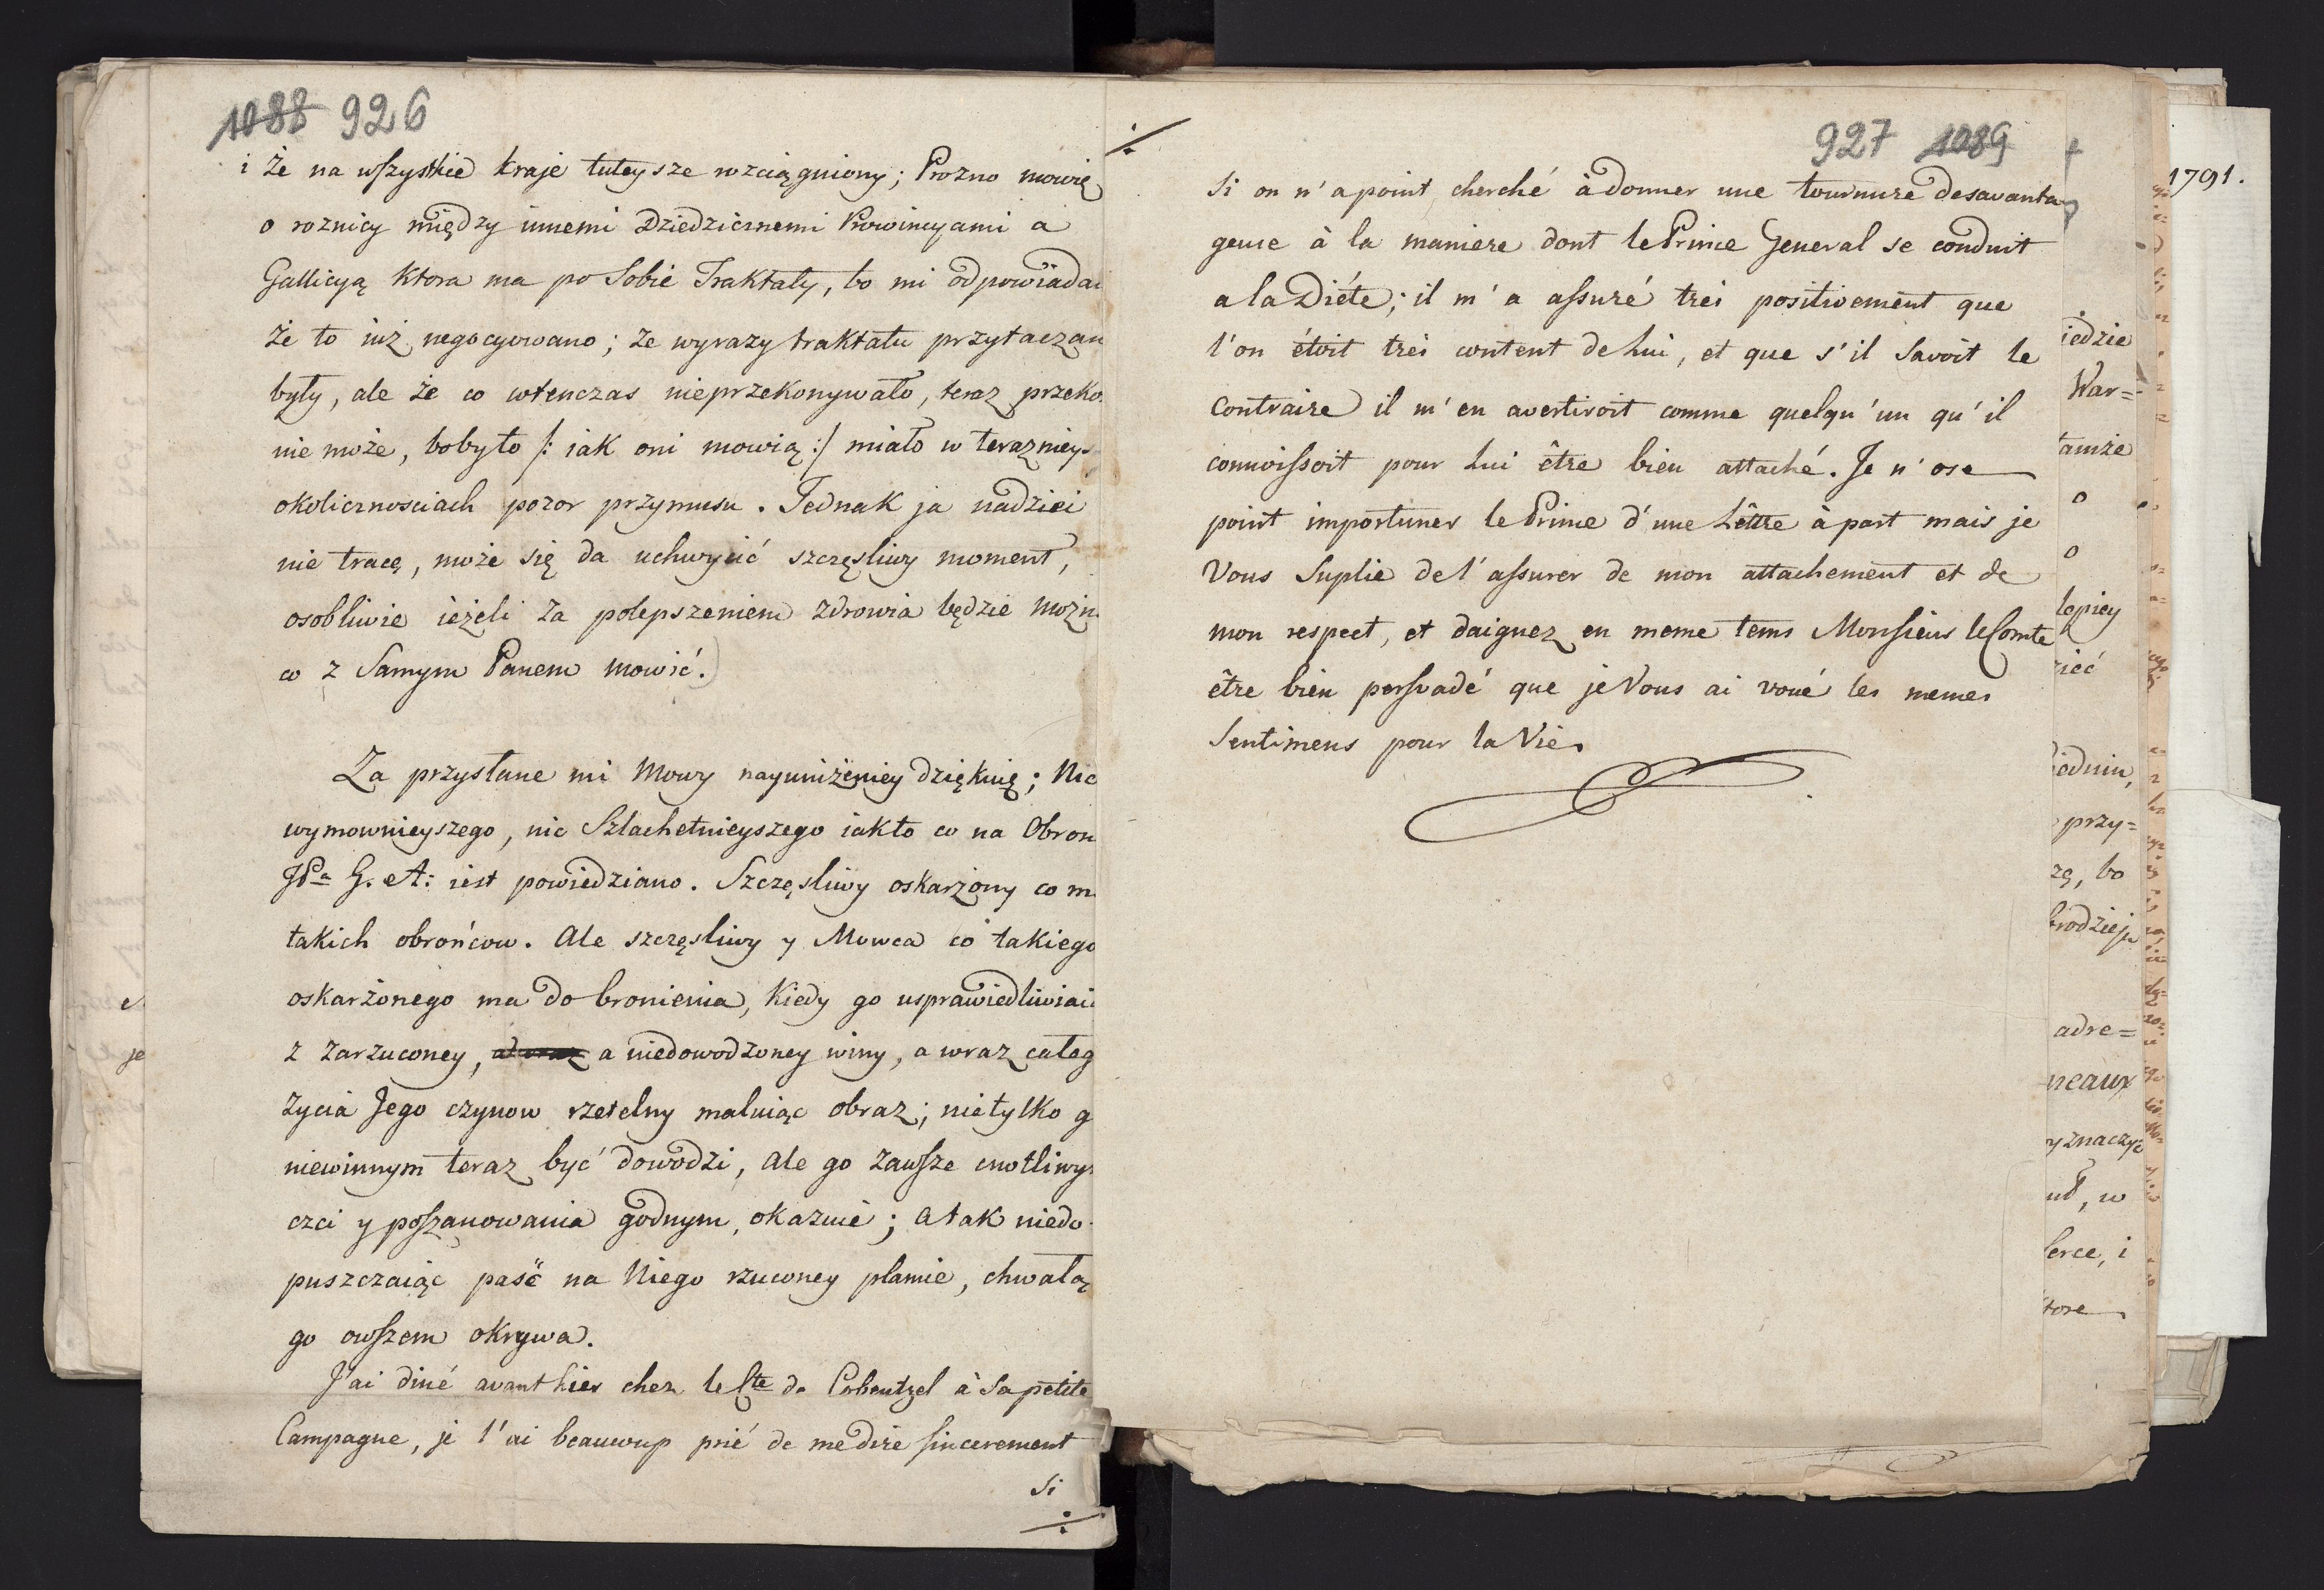 1088 926
i że na wſzystkie kraje tuteysze rozciągniony; Prozno mowię
o roznicy między innemi Dziedzicznemi Prowincyami a
Gallicyą ktora ma po Sobie Traktaty, bo mi odpowiadai
że to iuż negocyowano; że wyrazy traktatu przytaczan
były, ale że co wtenczas nieprzekonywało, teraz przeko
nie może, boby to /: iak oni mowią :/ miało w terazniey
okolicznosciach pozor przymusu. Jednak ja nadziei
nie tracę, może się da uchwycić szczęsliwy moment,
osobliwie ieżeli za polepszeniem zdrowia będzie możn
co z Samym Panem mowić.)
Za przysłane mi Mowy nayuniżeniey dziękuię; Nic
wymownieyszego, nic Szlachetnieyszego iak to co na Obron
JPa G. A: iest powiedziano. Szczęsliwy oskarżony co m
takich obrońcow. Ale szczęsliwy y Mowca co takiego
oskarżonego ma do bronienia, Kiedy go usprawiedliwiai
z zarzuconey, a niedowodzoney winy, a wraz całeg
życia Jego czynow rzetelny maluiąc obraz; nietylko g
niewinnym teraz być dowodzi, ale go zawſze cnotliwy
czci y poſzanowania godnym, okazuie; a tak niedo
puszczaiąc paść na Niego rzuconey plamie, chwałą
go owſzem okrywa.
J'ai diné avanthier chez le Cte de Cobentzel à Sa petite
Campagne, je l'ai beaucoup prié de me dire ſincerement
Si
÷
÷
927 1089
Si on n'a point cherché à donner une tournure desavanta
geuse à la maniere dont le Prince General se conduit
a la Diéte; il m'a aſsuré trés positivement que
l'on étoit trés content de Lui, et que s'il Savoit le
Contraire il m'en avertiroit comme quelqu'un qu'il
connoiſsoit pour Lui être bien attaché. Je n'ose
point importuner le Prince d'une Léttre à part mais je
Vous Suplie de l'aſsurer de mon attachement et de
mon respect, et daignez en meme tems Monſieur le Comte
être bien perſuadé que je Vous ai voué les memes
Sentimens pour la Vie.
1791.
iedzie
War=
tamże
o
o
lepiey
rieć
iedniu,
przy=
zę, bo
brodzieja
adre=
neaux
yznaczyć
ud, w
ſerce, i
tore